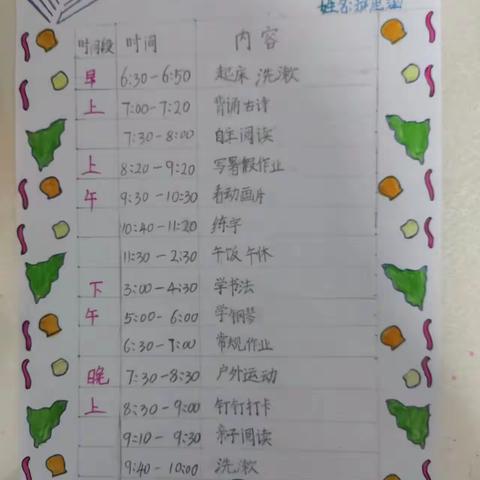 姓名:
时间段 时间 内容
早 6:30-6:50 起床 洗漱
上 7:00-7:20 背诵古诗
7:30-8:00 自主阅读
上 8:20-9:20 写暑假作业
午 9:30-10:30 看动画片
10:40-11:20 练字
11:30-2:30 午饭 午休
下 3:00-4:30 学书法
午 5:00-6:00 学钢琴
6:30-7:00 常规作业
晚 7:30-8:30 户外运动
上 8:30-9:00 钉钉打卡
9:10-9:30 亲子阅读
9:40-10:00 洗漱